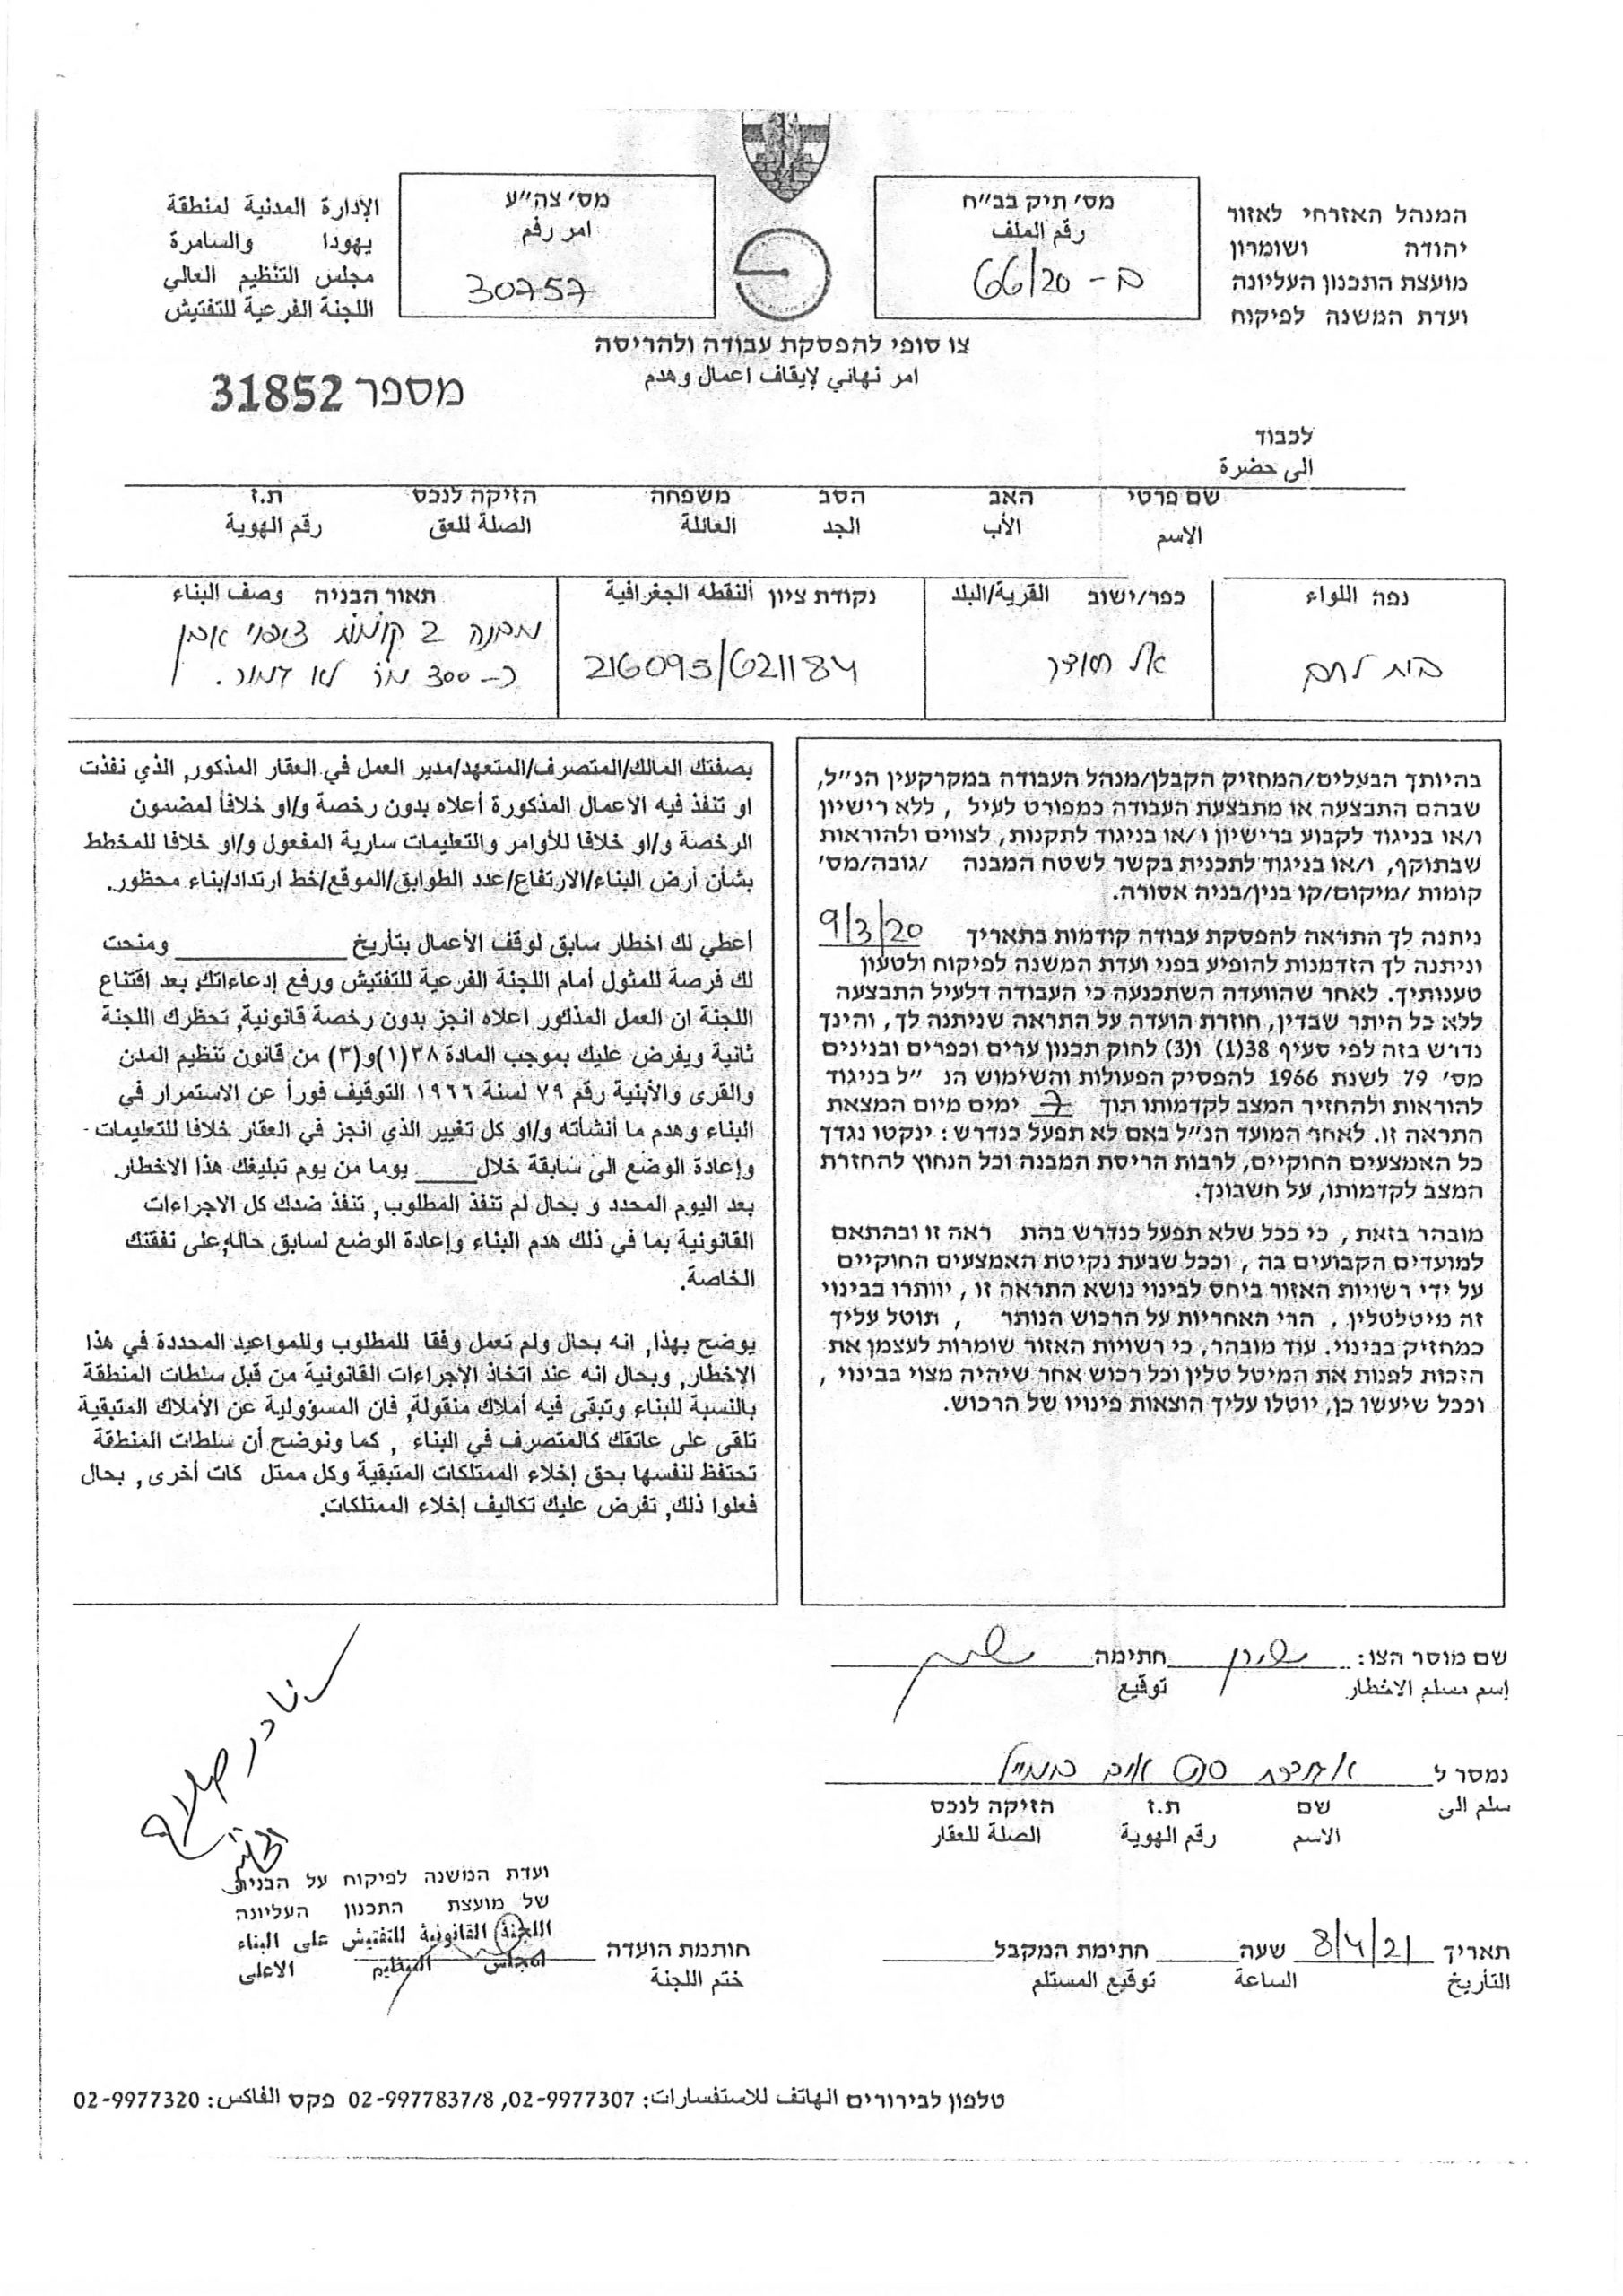 המנהל האזרחי לאזור
יהודה ושומרון
מועצת התכנון העליונה
ועדת המשנה לפיקוח
מס׳ תיק בב״ח
رقم الملف
ב - 66/20
מס׳ צה״ע
امر رقم
30757
الإدارة المدنية لمنطقة
يهودا والسامرة
مجلس التنظيم العالي
اللجنة الفرعية للتفتيش
צו סופי להפסקת עבודה ולהריסה
امر نهائي لإيقاف اعمال وهدم
מספר 31852
לכבוד
الى حضرة
שם פרטי האב הסב משפחה הזיקה לנכס ת.ז
الاسم الأب الجد العائلة الصلة للعق رقم الهوية
נפה اللواء כפר/ישוב القرية/البلد נקודת ציון ألنقطه الجغرافية תאור הבניה وصف البناء
בית לחם 216095/621184 מבנה 2 קומות ציפוי אבן
כ- 300 מ״ר לא גמור.
בהיותך הבעלים/המחזיק הקבלן/מנהל העבודה במקרקעין הנ״ל,
שבהם התבצעה או מתבצעת העבודה כמפורט לעיל , ללא רישיון
ו/או בניגוד לקבוע ברישיון ו/או בניגוד לתקנות, לצווים ולהוראות
שבתוקף, ו/או בניגוד לתכנית בקשר לשטח המבנה /גובה/מס׳
קומות /מיקום/קו בנין/בניה אסורה.
ניתנה לך התראה להפסקת עבודה קודמות בתאריך 9/3/20
וניתנה לך הזדמנות להופיע בפני ועדת המשנה לפיקוח ולטעון
טענותיך. לאחר שהוועדה השתכנעה כי העבודה דלעיל התבצעה
ללא כל היתר שבדין, חוזרת הועדה על התראה שניתנה לך, והינך
נדרש בזה לפי סעיף 38(1) ו(3) לחוק תכנון ערים וכפרים ובנינים
מס׳ 79 לשנת 1966 להפסיק הפעולות והשימוש הנ ״ל בניגוד
להוראות ולהחזיר המצב לקדמותו תוך 7 ימים מיום המצאת
התראה זו. לאחר המועד הנ״ל באם לא תפעל כנדרש: ינקטו נגדך
כל האמצעים החוקיים, לרבות הריסת המבנה וכל הנחוץ להחזרת
המצב לקדמותו, על חשבונך.
מובהר בזאת, כי ככל שלא תפעל כנדרש בהת ראה זו ובהתאם
למועדים הקבועים בה, וככל שבעת נקיטת האמצעים החוקיים
על ידי רשויות האזור ביחס לבינוי נושא התראה זו, יוותרו בבינוי
זה מיטלטלין, הרי האחריות על הרכוש הנותר , תוטל עליך
כמחזיק בבינוי. עוד מובהר, כי רשויות האזור שומרות לעצמן את
הזכות לפנות את המיטל טלין וכל רכוש אחר שיהיה מצוי בבינוי ,
וככל שיעשו כן, יוטלו עליך הוצאות פינויו של הרכוש.
بصفتك المالك/المتصرف/المتعهد/مدير العمل في العقار المذكور, الذي نفذت
او تنفذ فيه الاعمال المذكورة أعلاه بدون رخصة و/او خلافاً لمضمون
الرخصة و/او خلافا للأوامر والتعليمات سارية المفعول و/او خلافا للمخطط
بشأن أرض البناء/الارتفاع/عدد الطوابق/الموقع/خط ارتداد/بناء محظور.
أعطي لك اخطار سابق لوقف الأعمال بتأريخ ____________ ومنحت
لك فرصة للمثول أمام اللجنة الفرعية للتفتيش ورفع إدعاءاتك. بعد اقتناع
اللجنة ان العمل المذكور اعلاه انجز بدون رخصة قانونية, تحظرك اللجنة
ثانية ويفرض عليك بموجب المادة ٣٨(١)و(٣) من قانون تنظيم المدن
والقرى والأبنية رقم ٧٩ لسنة ١٩٦٦ التوقيف فوراً عن الاستمرار في
البناء وهدم ما أنشأته و/او كل تغيير الذي انجز في العقار خلافا للتعليمات -
وإعادة الوضع الى سابقة خلال____ يوما من يوم تبليغك هذا الاخطار.
بعد اليوم المحدد و بحال لم تنفذ المطلوب, تنفذ ضدك كل الاجراءات
القانونية بما في ذلك هدم البناء وإعادة الوضع لسابق حاله,على نفقتك
الخاصة.
يوضح بهذا, انه بحال ولم تعمل وفقا للمطلوب وللمواعيد المحددة في هذا
الإخطار, وبحال انه عند اتخاذ الإجراءات القانونية من قبل سلطات المنطقة
بالنسبة للبناء وتبقى فيه أملاك منقولة, فان المسؤولية عن الأملاك المتبقية
تلقى على عاتقك كالمتصرف في البناء , كما ونوضح أن سلطات المنطقة
تحتفظ لنفسها بحق إخلاء الممتلكات المتبقية وكل ممتل كات أخرى, بحال
فعلوا ذلك, تفرض عليك تكاليف إخلاء الممتلكات.
שם מוסר הצו: חתימה
إسم مسلم الاخطار توقيع
נמסר ל
سلم الى שם ת.ז הזיקה לנכס
الاسم رقم الهوية الصلة للعقار
ועדת המשנה לפיקוח על הבניה
של מועצת התכנון העליונה
اللجنة القانونية للتفتيش على البناء
لمجلس التنظيم الاعلى
תאריך 8/4/21 שעה חתימת המקבל חותמת הועדה
التأريخ الساعة توقيع المستلم ختم اللجنة
טלפון לבירורים الهاتف للاستفسارات: 02-9977307, 02-9977837/8 פקס الفاكس: 02-9977320